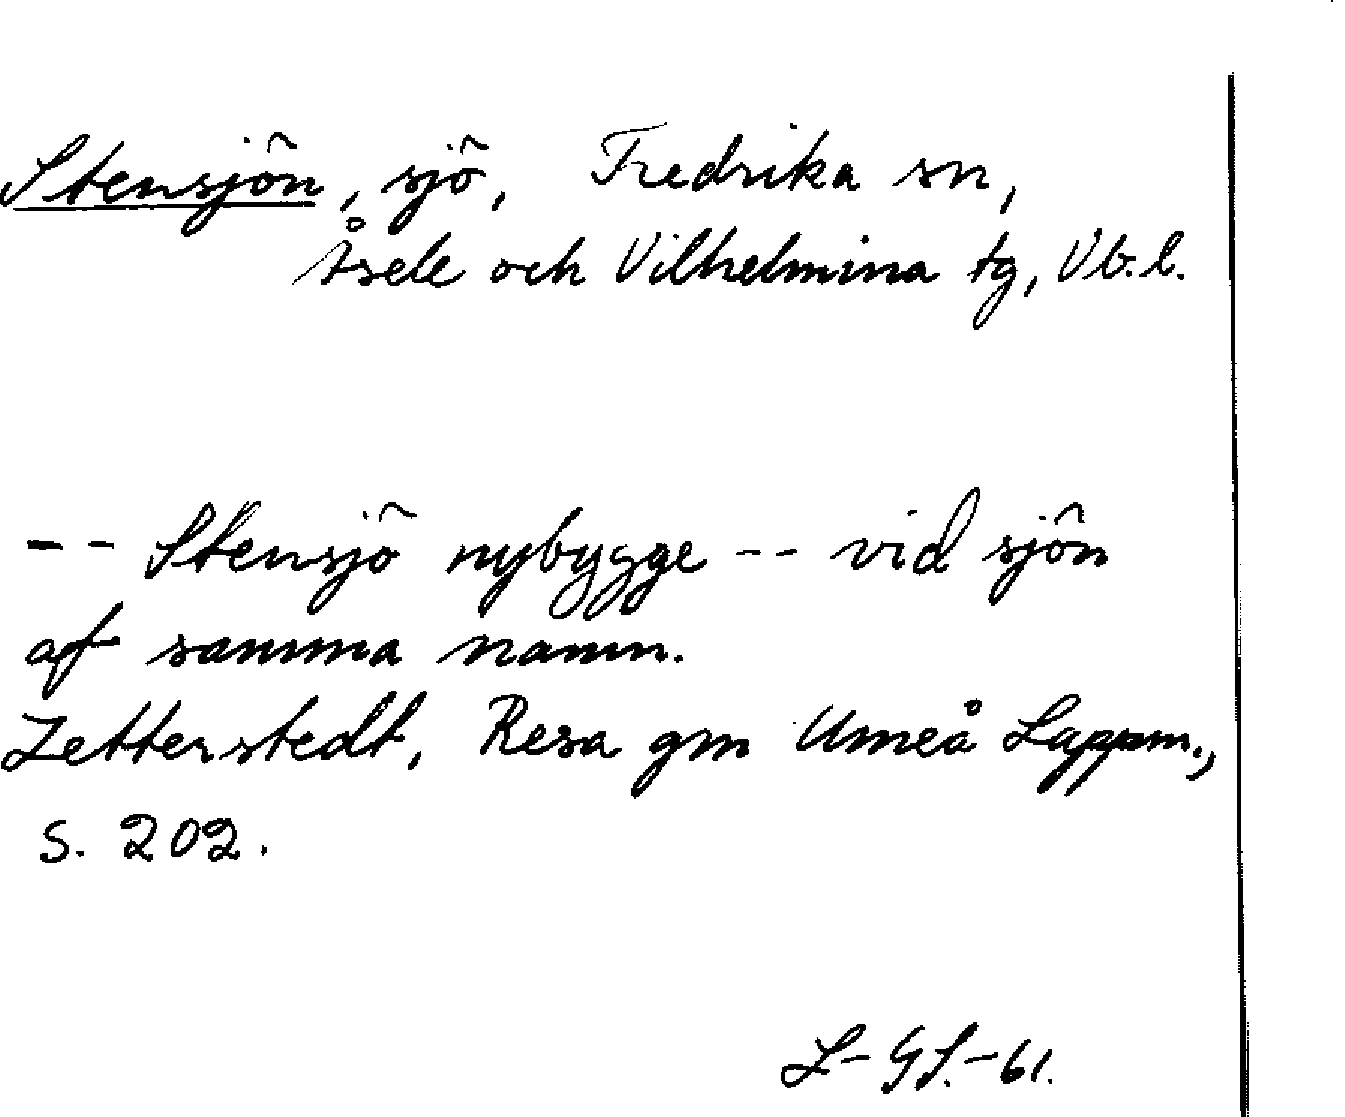 Stensjön, sjö, Fredrika sn,
Åsele och Vilhelmina tg, Vb. l.
-- Stensjö nybygge -- vid sjön
af samma namn.
Zetterstedt, Resa gm Umeå Lappm.,
s. 202.
L-GS.-61.